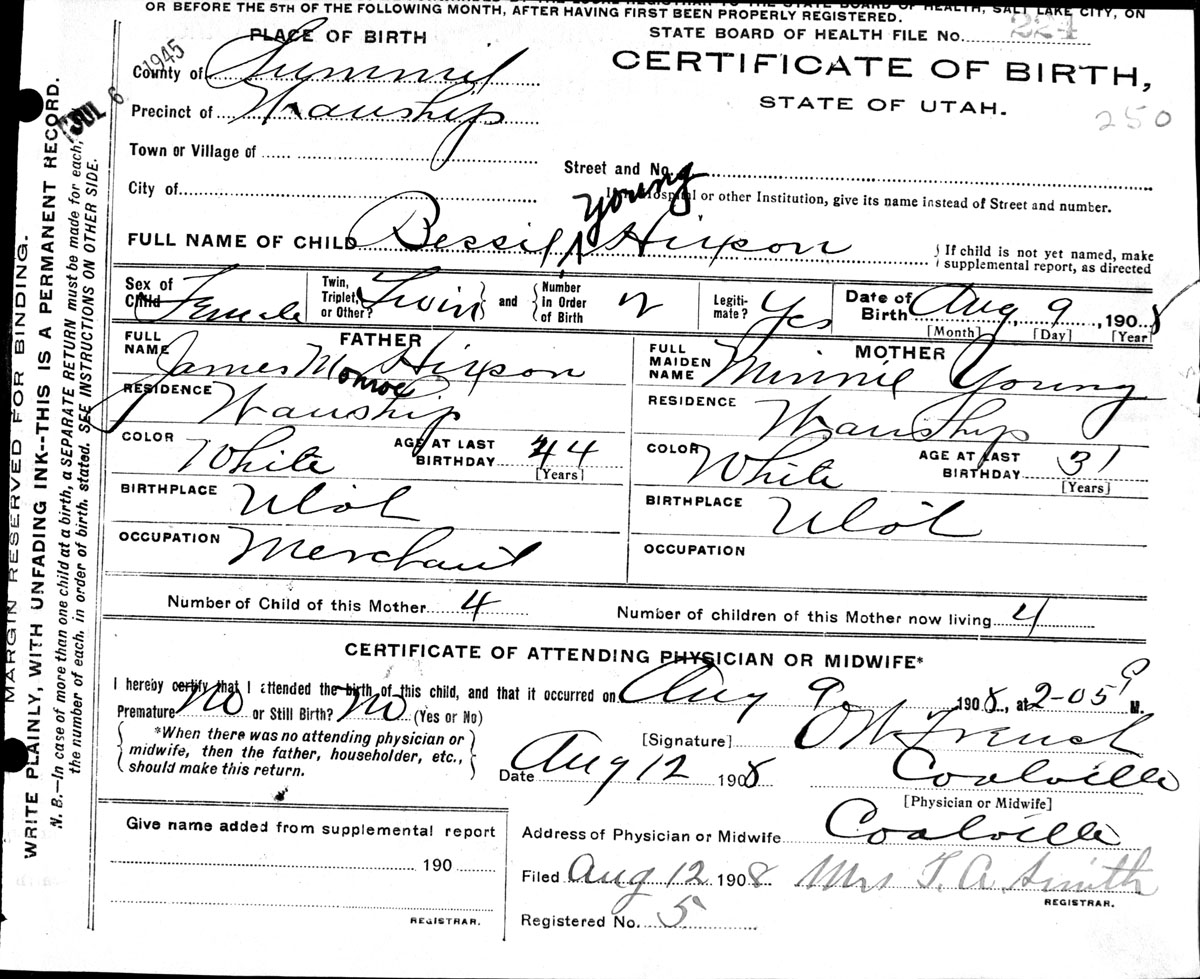 OR BEFORE THE 5TH OF THE FOLLOWING MONTH, AFTER HAVING FIRST BEEN PROPERLY REGISTERED.
HEALTH, SALT LAKE CITY, ON
STATE BOARD OF HEALTH FILE No. 224
CERTIFICATE OF BIRTH,
STATE OF UTAH.
250
JUL 6 1945
PLACE OF BIRTH
County of Summit
Precinct of Wanship
Town or Village of
City of
Street and No.
If in Hospital or other Institution, give its name instead of Street and number.
FULL NAME OF CHILD Bessie Young Hixson
If child is not yet named, make supplemental report, as directed
Sex of Child Female
Twin, Triplet, or Other? Twin and Number in Order of Birth 2
Legitimate? Yes
Date of Birth Aug 9, 1908
[Month] [Day] [Year]
FATHER
FULL NAME James Monroe Hixson
RESIDENCE Wanship
COLOR White AGE AT LAST BIRTHDAY 44
[Years]
BIRTHPLACE Utah
OCCUPATION Merchant
MOTHER
FULL MAIDEN NAME Minnie Young
RESIDENCE Wanship
COLOR White AGE AT LAST BIRTHDAY 31
[Years]
BIRTHPLACE Utah
OCCUPATION
Number of Child of this Mother 4 Number of children of this Mother now living 4
CERTIFICATE OF ATTENDING PHYSICIAN OR MIDWIFE*
I hereby certify that I attended the birth of this child, and that it occurred on Aug 9 1908, at 2-05 P M.
Premature No or Still Birth? No (Yes or No)
*When there was no attending physician or
midwife, then the father, householder, etc.,
should make this return.
[Signature] O W French
Date Aug 12 1908 Coalville
[Physician or Midwife]
Give name added from supplemental report
190
REGISTRAR.
Address of Physician or Midwife Coalville
Filed Aug 12 1908 Mrs T. A Smith
REGISTRAR.
Registered No. 5
MARGIN RESERVED FOR BINDING.
WRITE PLAINLY, WITH UNFADING INK--THIS IS A PERMANENT RECORD.
N. B.—In case of more than one child at a birth, a SEPARATE RETURN must be made for each,
the number of each, in order of birth, stated. SEE INSTRUCTIONS ON OTHER SIDE.